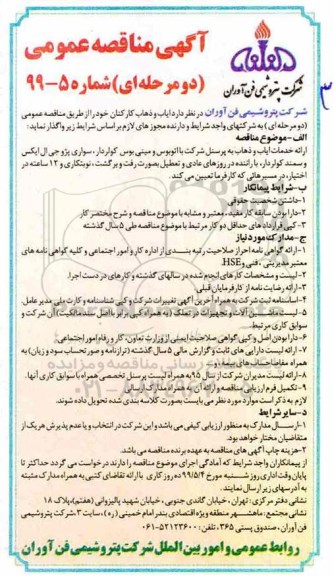 آگهی مناقصه عمومی
(دو مرحله ای) شماره ۵-۹۹
شرکت پتروشیمی فن آوران
۳
شرکت پتروشیمی فن آوران در نظر دارد ایاب و ذهاب کارکنان خود را از طریق مناقصه عمومی
(دو مرحله ای) به شرکتهای واجد شرایط و دارنده مجوز های لازم بر اساس شرایط زیر واگذار نماید:
الف - موضوع مناقصه
ارائه خدمات ایاب و ذهاب به پرسنل شرکت با اتوبوس و مینی بوس کولردار، سواری پژو جی ال ایکس
و سمند کولردار، با راننده در روزهای عادی و تعطیل بصورت رفت و برگشت، نوبتکاری و ۱۲ ساعته در
اختیار، در مسیر هائی که کار فرما تعیین می کند.
ب - شرایط پیمانکار
۱- داشتن شخصیت حقوقی
۲- دارا بودن سابقه کار مفید، معتبر و مشابه با موضوع مناقصه و شرح مختصر کار
۳- کپی قرارداد های حداقل دو کار مرتبط با موضوع مناقصه طی ۵ سال گذشته
ج - مدارک مورد نیاز
۱- ارائه گواهی نامه احراز صلاحیت رتبه بندی از اداره کار و امور اجتماعی و کلیه گواهی نامه های
معتبر مدیریتی، فنی و HSE.
۲- لیست و مشخصات کار های انجام شده در سالهای گذشته و کارهای در دست اجرا.
۳- ارائه رضایت نامه از کارفرمایان قبلی.
۴- اساسنامه ثبت شرکت به همراه آخرین آگهی تغییرات شرکت و کپی شناسنامه و کارت ملی مدیر عامل.
۵- لیست ماشین آلات و تجهیزات در تملک (به همراه کپی برابر با اصل سند مالکیت) آن شرکت و
سوابق کاری مرتبط.
۶- دارا بودن اصل و کپی گواهی صلاحیت ایمنی از وزارت تعاون، کار و رفاه امور اجتماعی.
۷- ارائه لیست دارایی های ثابت و گزارش مالی ۵ سال گذشته (ترازنامه و صورتحساب سود و زیان) به
همراه مفاصا حساب های بیمه
۸- ارائه لیست مدیران شرکت از سال ۹۵ به همراه لیست پرسنل تخصصی همراه با سوابق کاری آنها.
۹- تکمیل فرم ارزیابی مناقصه و ارائه آن به همراه مدارک ارسالی
لازم به ذکر است موارد مورد نظر می بایست بصورت کلاسه بندی شده تحویل داده شوند.
د - سایر شرایط
۱- ارسال مدارک به منظور ارزیابی کیفی می باشد و این شرکت در انتخاب و یا عدم پذیرش هر یک از
متقاضیان مختار خواهد بود.
۲- هزینه چاپ آگهی های مناقصه به عهده برنده مناقصه می باشد.
از پیمانکاران واجد شرایط که آمادگی اجرای موضوع مناقصه را دارند درخواست می گردد حداکثر تا
پایان وقت اداری روز شنبه مورخ ۹۹/۵/۴ ده روز کاری با ارائه تقاضای کتبی به همراه مدارک مثبته
به آدرسهای زیر ارسال نمایند.
نشانی دفتر مرکزی: تهران، خیابان گاندی جنوبی، خیابان شهید پالیزوانی (هفتم)، پلاک ۱۸
نشانی مجتمع: ماهشهر، منطقه ویژه اقتصادی بندر امام خمینی (ره)، سایت ۳، شرکت پتروشیمی
فن آوران، صندوق پستی ۳۶۵، تلفن: ۵۲۱۲۳۶۰۰-۰۶۱
روابط عمومی و امور بین الملل شرکت پتروشیمی فن آوران